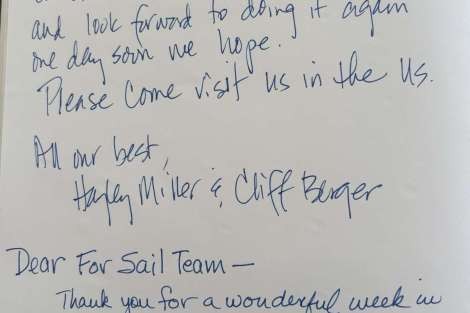 and look forward to doing it again
one day soon we hope.
Please come visit us in the US.
All our best,
Hayley Miller & Cliff Berger
Dear For Sail Team —
Thank you for a wonderful week in